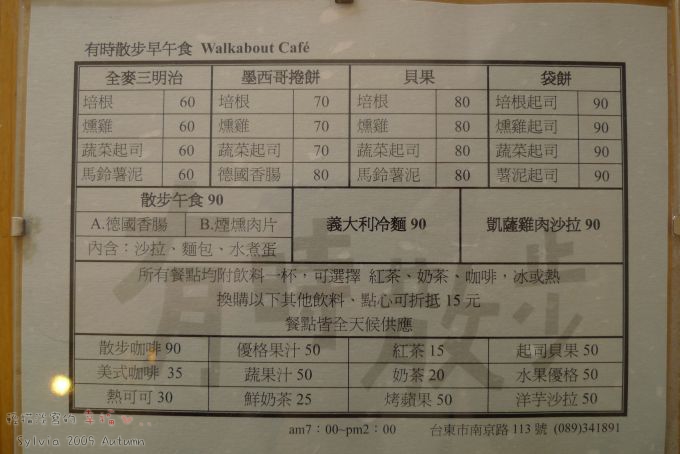 有時散步早午食 Walkabout Café
全麥三明治 墨西哥捲餅 貝果 袋餅
培根 60 培根 70 培根 80 培根起司 90
燻雞 60 燻雞 70 燻雞 80 燻雞起司 90
蔬菜起司 60 蔬菜起司 70 蔬菜起司 80 蔬菜起司 90
馬鈴薯泥 60 德國香腸 80 馬鈴薯泥 80 薯泥起司 90
散步午食 90 義大利冷麵 90 凱薩雞肉沙拉 90
A.德國香腸 B.煙燻肉片
內含：沙拉、麵包、水煮蛋
所有餐點均附飲料一杯，可選擇 紅茶、奶茶、咖啡，冰或熱
換購以下其他飲料、點心可折抵 15 元
餐點皆全天候供應
有時散步
散步咖啡 90 優格果汁 50 紅茶 15 起司貝果 50
美式咖啡 35 蔬果汁 50 奶茶 20 水果優格 50
熱可可 30 鮮奶茶 25 烤蘋果 50 洋芋沙拉 50
am7：00~pm2：00 台東市南京路 113 號 (089)341891
幸福
Sylvia 2009 Autumn